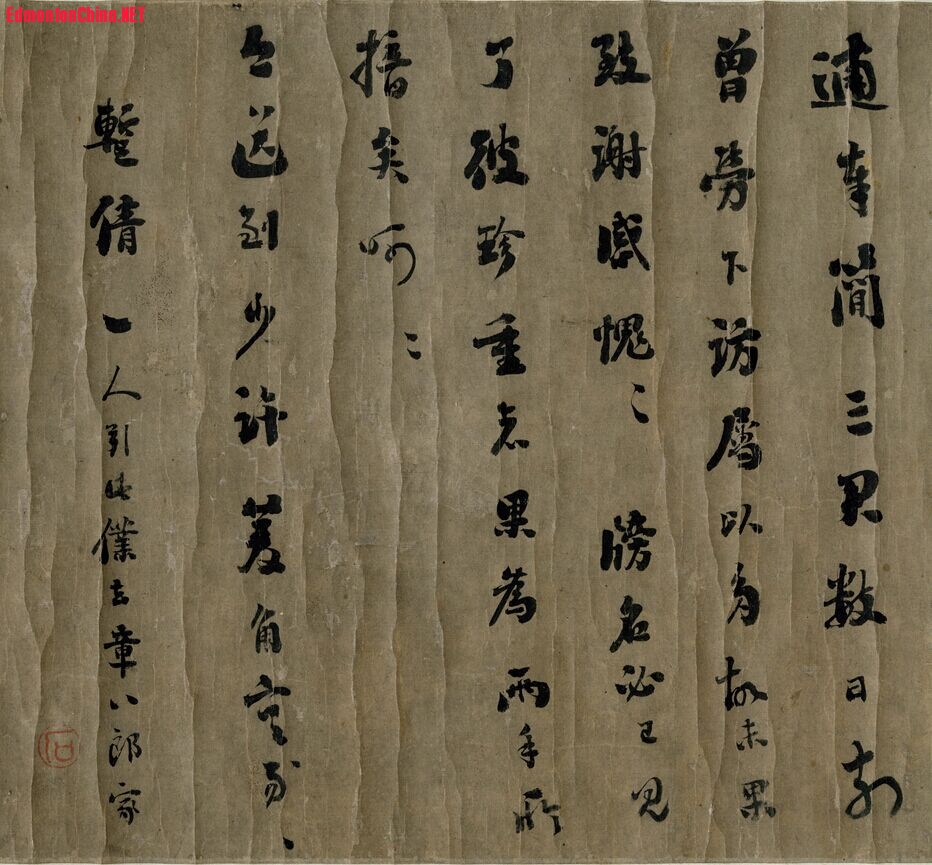 EdmontonChina.NET
逋奉簡三君數日前
曾勞下訪屬以多故未果
致謝感愧〻牓名必已見
了彼珍重者果為兩手所
揞矣呵〻
今送到少許菱角容易〻
暫倩一人引此僕去章八郎家